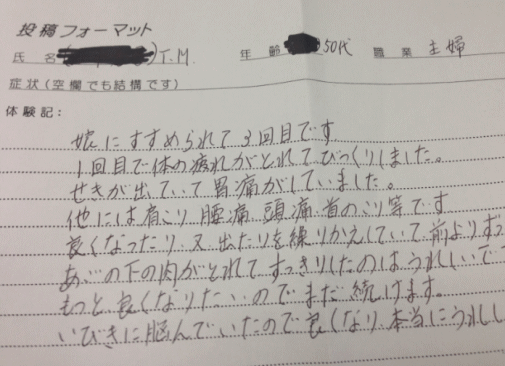 投稿フォーマット
氏名 T.M. 年齢 50代 職業 主婦
症状(空欄でも結構です)
体験記:
娘にすすめられて3回目です
1回目で体の疲れがとれてびっくりしました。
せきが出ていて胃痛がしていました。
他には肩こり 腰痛 頭痛 首のこり等です
良くなったり又出たりを繰りかえしていて前よりずっ
あごの下の肉がとれてすっきりしたのはうれしいで
もっと良くなりたいのでまだ続けます。
いびきに脳んでいたので良くなり、本当にうれし